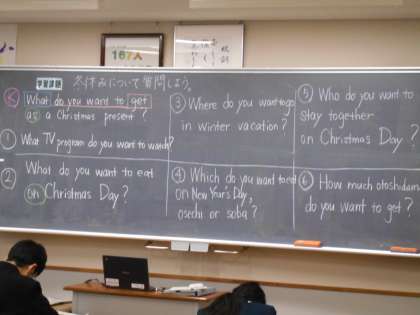 学習課題 冬休みについて質問しよう。
What do you want to get
as a Christmas present?
① What TV program do you want to watch?
② What do you want to eat
on Christmas Day?
③ Where do you want to go
in winter vacation?
④ Which do you want to eat
on New Year's Day,
osechi or soba?
⑤ Who do you want to
stay together
on Christmas Day?
⑥ How much otoshidama
do you want to get?
167人